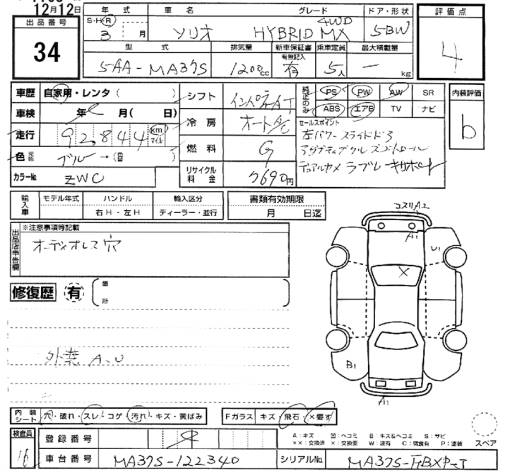 12月12日
出品番号
34
年式 車名 グレード ドア・形状
S・H・R 3 月 ソリオ HYBRID MX 4WD 5BW
型式 排気量 新車保証書 乗車定員 最大積載量
有無記入
5AA-MA37S 1200cc 有 5人 — kg
評価点
4
車歴 自家用・レンタ( )
車検 年 月( 日)
走行 92,844 km マイル
色 ブルー
カラーNo ZWC
シフト インパネAT
冷房 オートA/C
燃料 G
リサイクル料金 7690円
PS PW AW SR
ABS エアB TV ナビ
セールスポイント
左パワースライドドア
アダプティブクルーズコントロール
デュアルカメラブレーキサポート
内装評価
b
輸入車 モデル年式 ハンドル 輸入区分 書類有効期限
右H・左H ディーラー・並行 月 日迄
出品店申告欄
※注意事項等記載
オーディオレス穴
修復歴 有 箇所
外装 A.U
コスリA2
A1
U1
X
B1
A1
内装シート 穴・破れ・スレ・コゲ・汚れ・キズ・黄ばみ Fガラス キズ・飛石・×要す
検査員
16
登録番号
車台番号 MA37S-122340 シリアルNo.
A:キズ U:凹ヘコミ B:キズ&ヘコミ S:サビ
××:交換済 ×:交換要 W:波有 C:腐食有 P:塗装 スペア